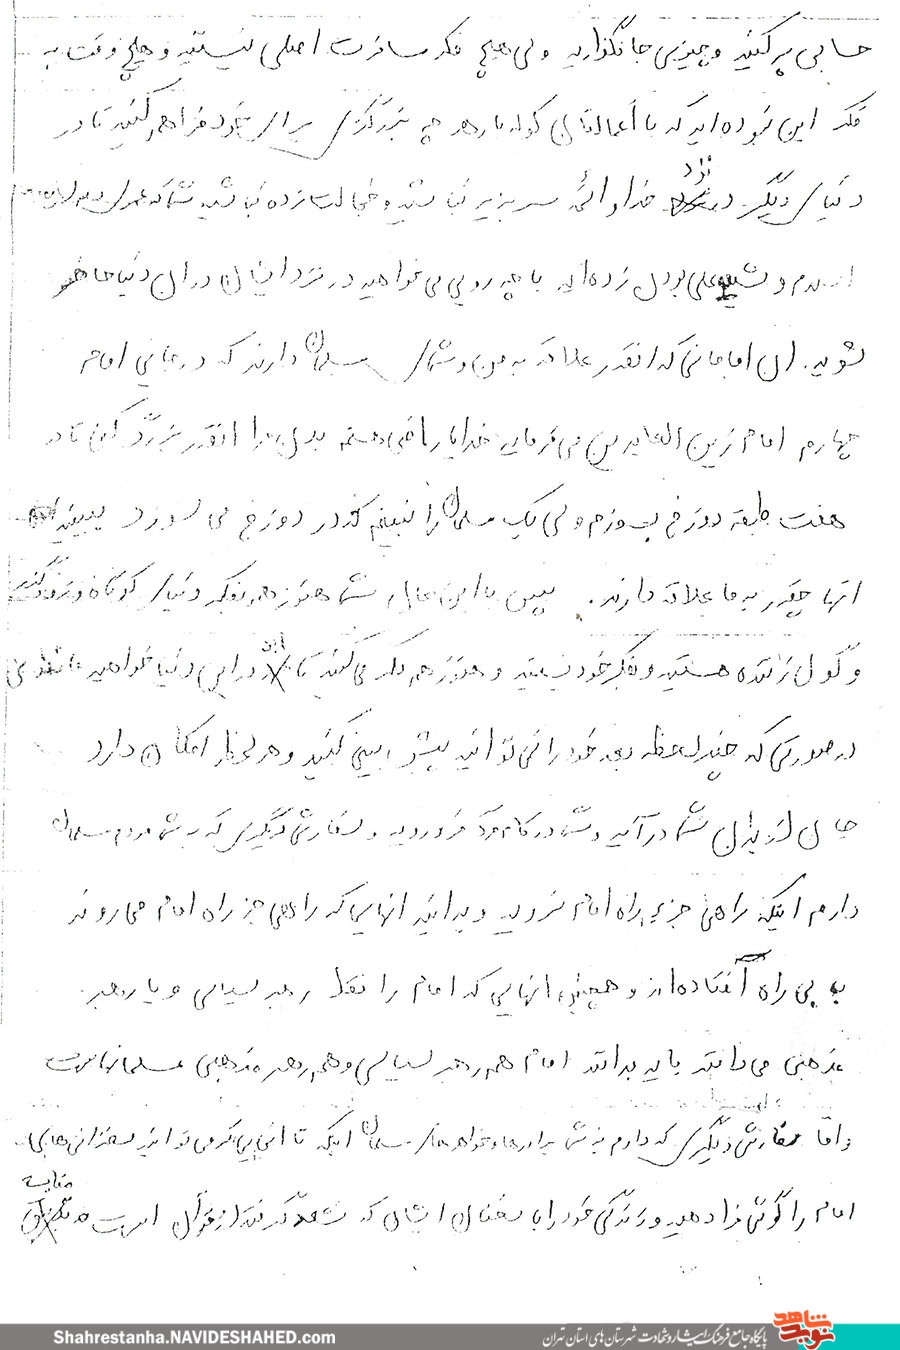 حسابی پر کنید و چیزی جا نگذارید ولی هیچ فکر مسافرت اصلی نیستید و هیچ وقت به
فکر این نبوده‌اید که با اعمالتان کوله بار هر چه بزرگتری برای خود فراهم کنید تا در
دنیای دیگر نزد خدا و ائمه سر بزیر نباشید و خجالت زده نباشید شما که
اسلام و شیعه علی بودن زده‌اید با چه رویی می‌خواهید در نزد ایشان در آن دنیا حاضر
شوید. ان امامانی که انقدر علاقه به من و شمای مسلمان دارند که در جایی امام
چهارم امام زین العابدین می‌فرماید خدایا راضی هستم بدن مرا انقدر بزرگ کن تا در
هفت طبقه دوزخ بسوزم ولی یک مسلمان را نبینم که در دوزخ می سوزد ببینید
انها چقدر به ما علاقه دارند. پس با این حال شما هنوز هم بفکر دنیای کوتاه و زودگذر
و گول زننده هستید و بفکر خود نیستید و هنوز هم فکر می‌کنید تا ابد در این دنیا خواهید ماند
در صورتی که چند لحظه بعد خود را نمی توانید پیش بینی کنید و هر لحظه امکان دارد
جان از بدن شما در آید و شما در کام مرگ فرو روید و سفارش دیگری که به شما مردم مسلمان
دارم اینکه راهی جز به راه امام نروید و بدانید انهایی که راهی جز راه امام می روند
به بی راه افتاده‌اند و همچنین انهایی که امام را فقط رهبر سیاسی و یا رهبر
مذهبی می‌دانند باید بدانند امام هم رهبر سیاسی و هم رهبر مذهبی مسلمانهاست
و اما سفارش دیگری که دارم به شما برادرها و خواهرهای مسلمان اینکه تا انجایی که می توانید سخنرانی‌های
امام را گوش فرا دهید و زندگی خود را با سخنان ایشان که نشأت گرفته از قرآن است مقایسه
Shahrestanha.NAVIDESHAHED.com
پایگاه جامع فرهنگ ایثار و شهادت شهرستان های استان تهران
نوید شاهد